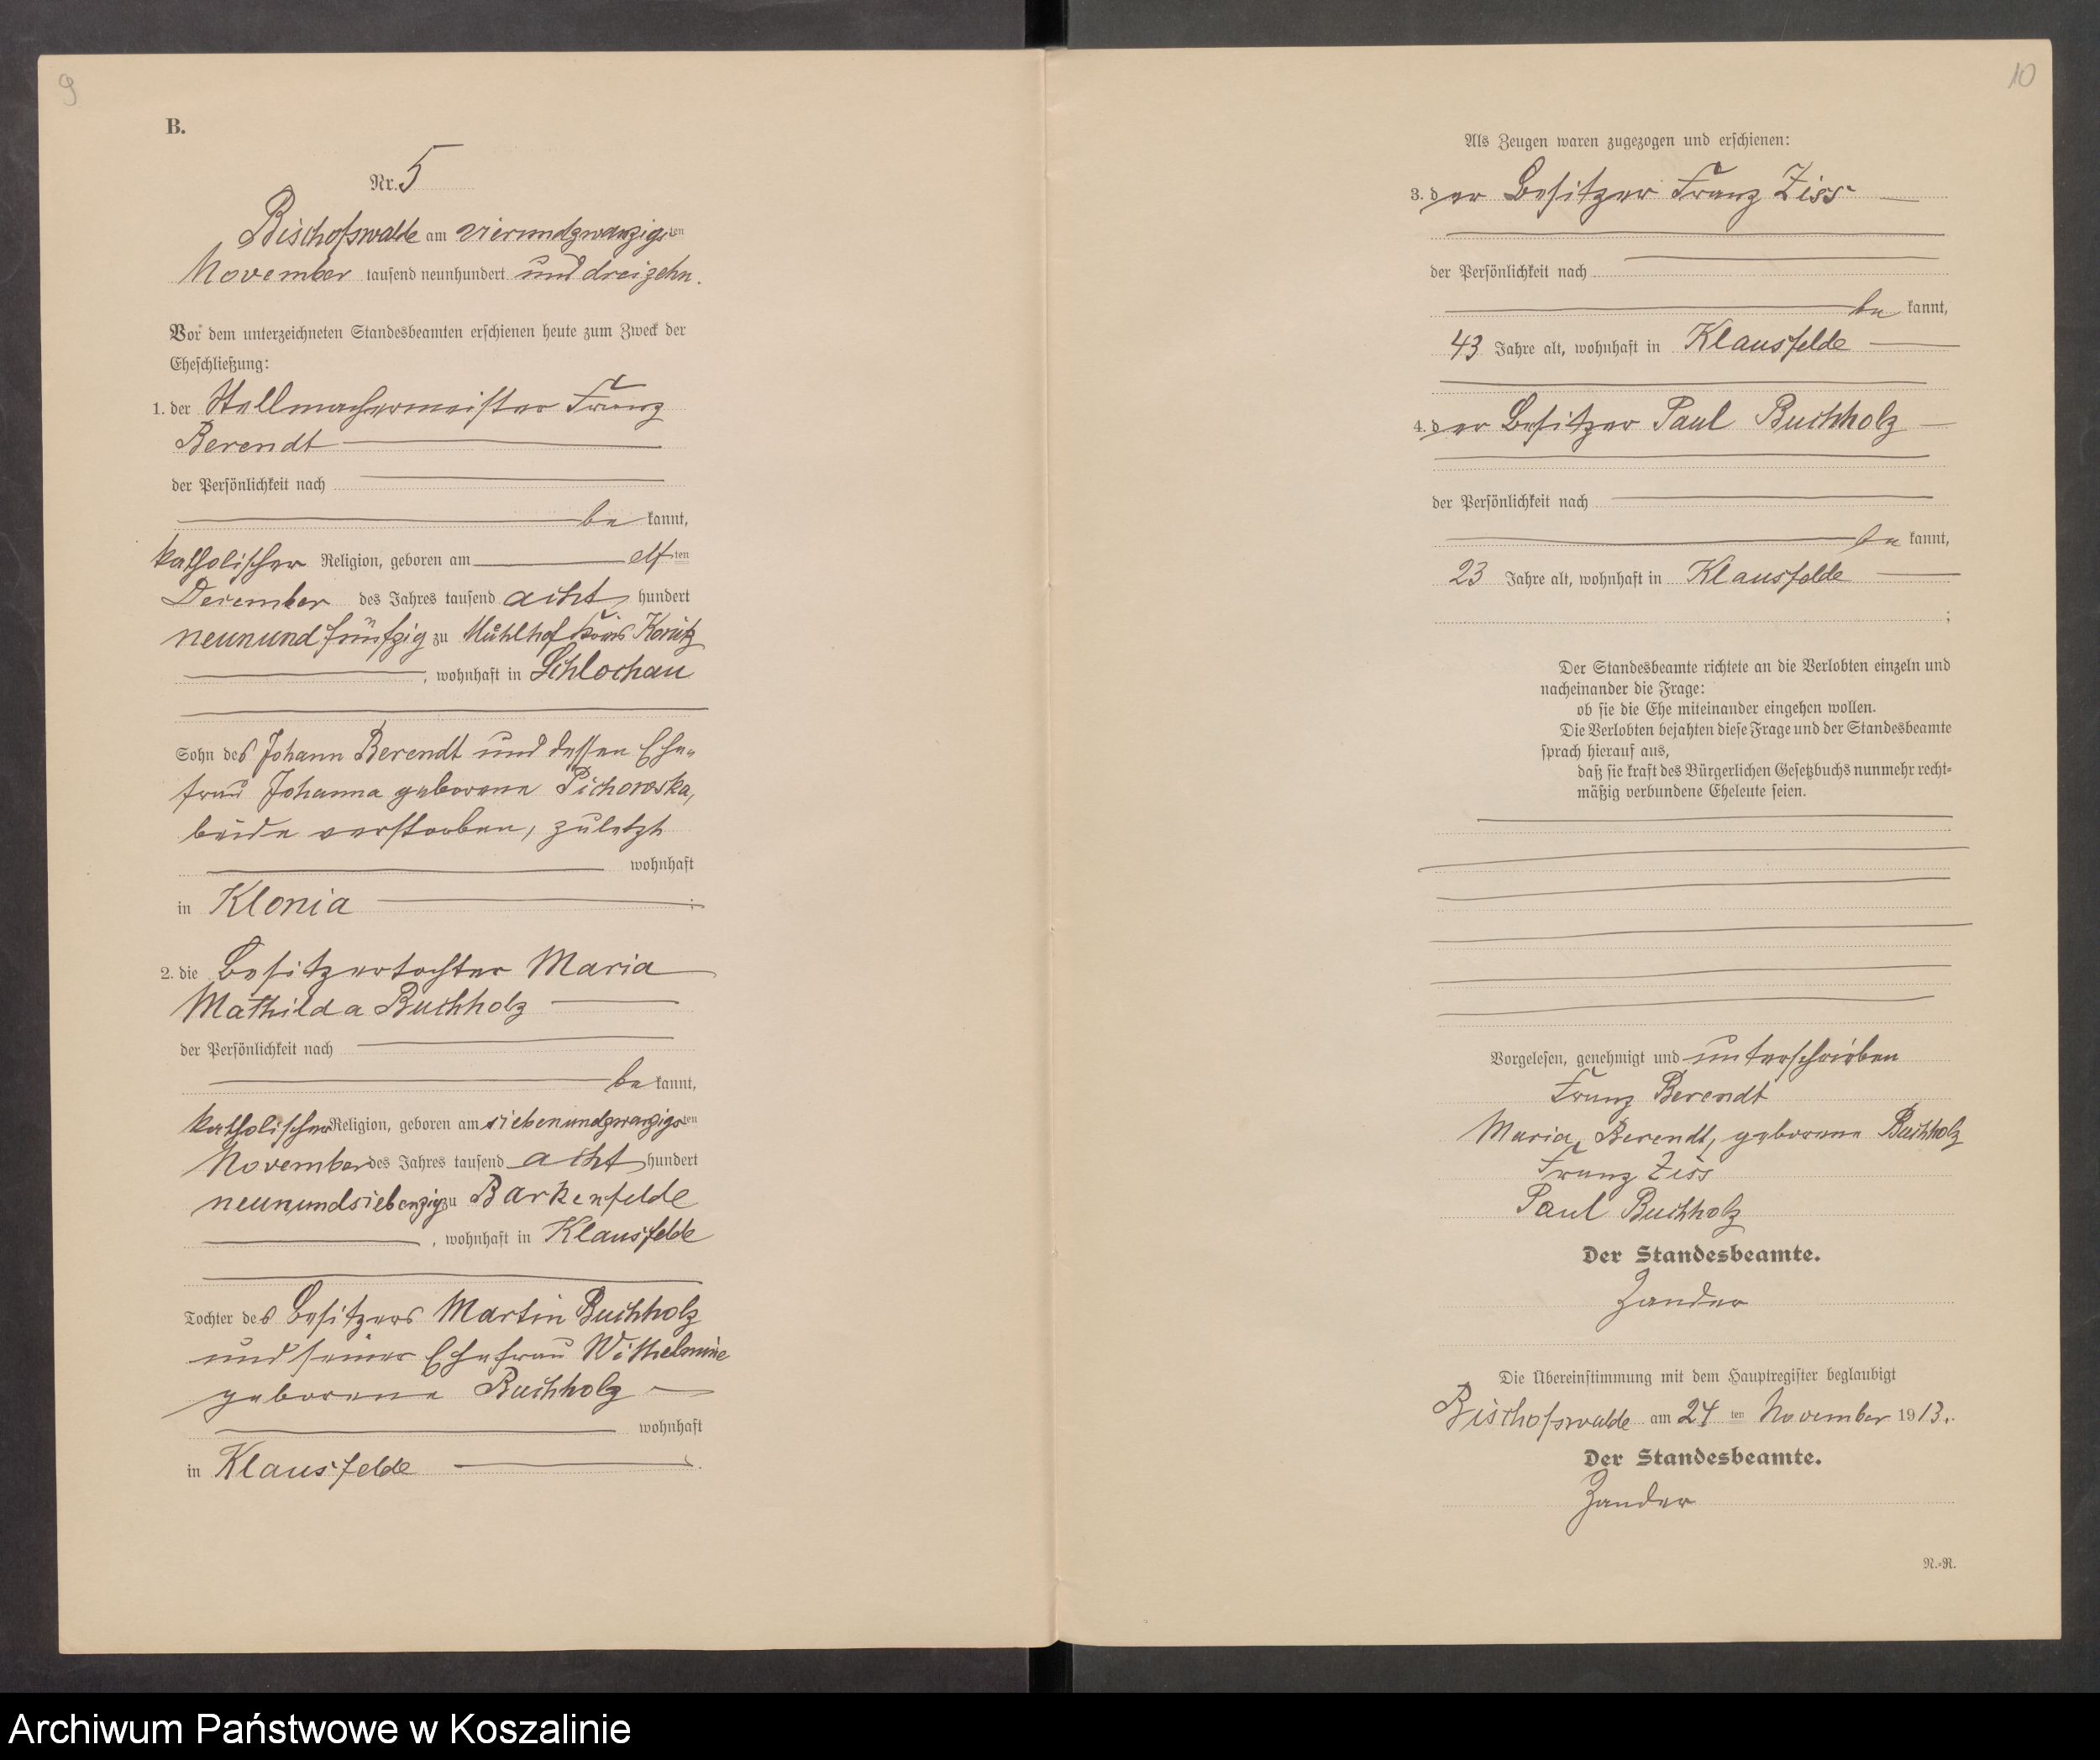 9
B.
Nr. 5
Bischofswalde am vierundzwanzigsten
November tausend neunhundert und dreizehn.
Vor dem unterzeichneten Standesbeamten erschienen heute zum Zweck der
Eheschließung:
1. der Stellmachermeister Franz
Berendt
der Persönlichkeit nach
be kannt,
katholischer Religion, geboren am elf ten
Dezember des Jahres tausend acht hundert
neunundfünfzig zu Mühlhof Kreis Konitz
, wohnhaft in Schlochau
Sohn des Johann Berendt und dessen Ehe-
frau Johanna geborene Pichowska,
beide verstorben, zuletzt
wohnhaft
in Klonia
2. die Besitzertochter Maria
Mathilda Buchholz
der Persönlichkeit nach
be kannt,
katholischer Religion, geboren am siebenundzwanzigsten
November des Jahres tausend acht hundert
neunundsiebenzig zu Barkenfelde
, wohnhaft in Klausfelde
Tochter des Besitzers Martin Buchholz
und seiner Ehefrau Wilhelmine
geborene Buchholz
wohnhaft
in Klausfelde
10
Als Zeugen waren zugezogen und erschienen:
3. der Besitzer Franz Ziss
der Persönlichkeit nach
be kannt,
43 Jahre alt, wohnhaft in Klausfelde
4. der Besitzer Paul Buchholz
der Persönlichkeit nach
be kannt,
23 Jahre alt, wohnhaft in Klausfelde
;
Der Standesbeamte richtete an die Verlobten einzeln und
nacheinander die Frage:
ob sie die Ehe miteinander eingehen wollen.
Die Verlobten bejahten diese Frage und der Standesbeamte
sprach hierauf aus,
daß sie kraft des Bürgerlichen Gesetzbuchs nunmehr recht-
mäßig verbundene Eheleute seien.
Vorgelesen, genehmigt und unterschrieben
Franz Berendt
Maria Berendt, geborene Buchholz
Franz Ziss
Paul Buchholz
Der Standesbeamte.
Zander
Die Übereinstimmung mit dem Hauptregister beglaubigt
Bischofswalde am 24 ten November 1913.
Der Standesbeamte.
Zander
N.-R.
Archiwum Państwowe w Koszalinie